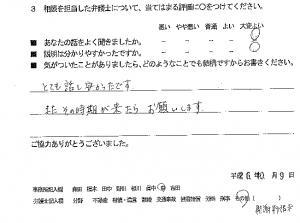 3 相談を担当した弁護士について、当てはまる評価に○をつけてください。
悪い やや悪い 普通 良い 大変よい
■ あなたの話をよく聞きましたか。
■ 説明は分かりやすかったですか。
■ 気がついたことがありましたら、どのようなことでも結構ですからお書きください。
とても話し安かったです
またその時期が来たらお願いします。
ご協力ありがとうございました。
平成 年 月 9日
事務所記入欄
弁護士記入欄 分野 不動産 相続・遺言 離婚 交通事故 刑事 その他